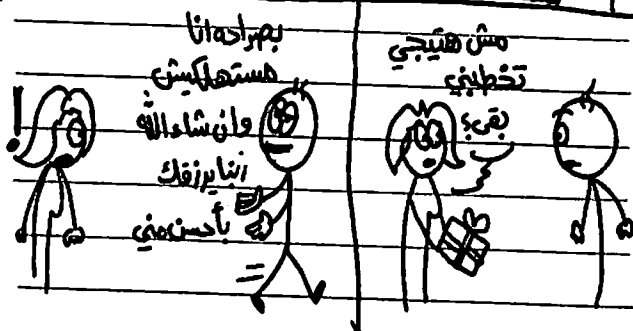 مش هتيجي
تخطبني
بقى؟
بصراحه انا
مستهلكيش
وان شاء الله
ربنا يرزقك
بأحسن مني
!